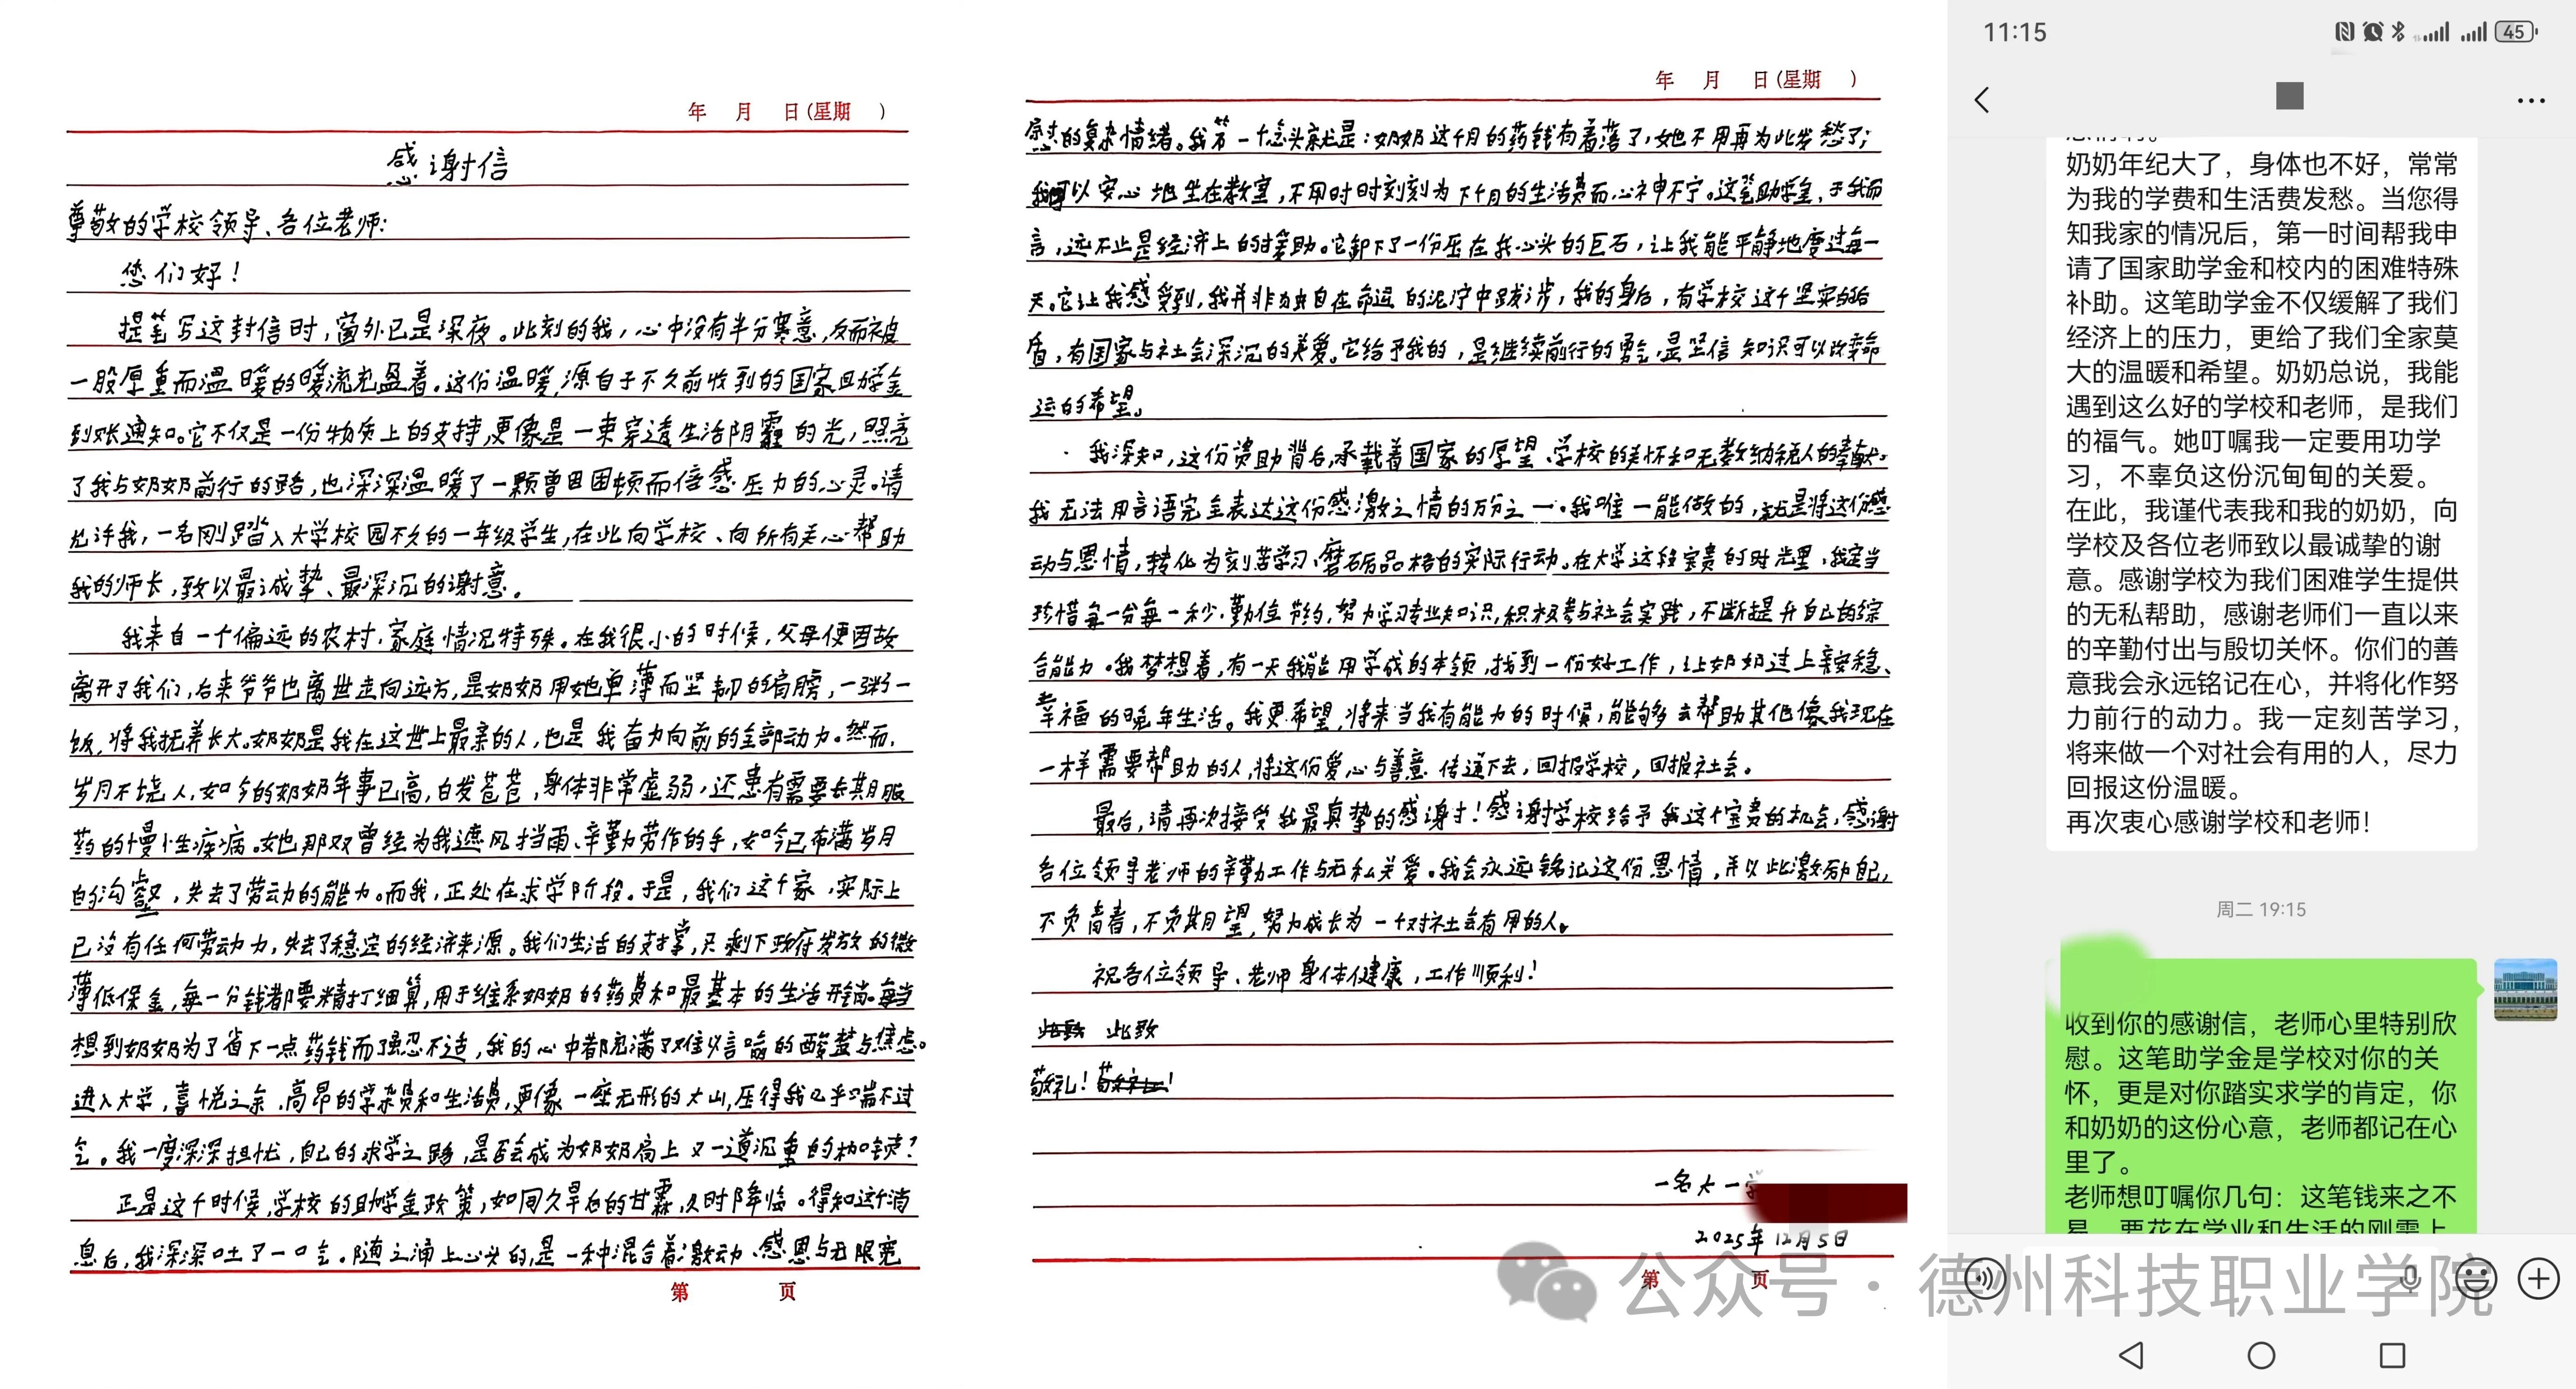 年 月 日(星期 )
感谢信
尊敬的学校领导、各位老师:
您们好!
提笔写这封信时,窗外已是深夜。此刻的我,心中没有半分寒意,反而被
一股厚重而温暖的暖流充盈着。这份温暖,源自于不久前收到的国家助学金
到账通知。它不仅是一份物质上的支持,更像是一束穿透生活阴霾的光,照亮
了我与奶奶前行的路,也深深温暖了一颗曾因困顿而倍感压力的心灵。请
允许我,一名刚踏入大学校园不久的一年级学生,在此向学校、向所有关心帮助
我的师长,致以最诚挚、最深沉的谢意。
我来自一个偏远的农村,家庭情况特殊。在我很小的时候,父母便因故
离开了我们,后来爷爷也离世走向远方,是奶奶用她单薄而坚韧的肩膀,一粥一
饭,将我抚养长大。奶奶是我在这世上最亲的人,也是我奋力向前的全部动力。然而,
岁月不饶人,如今的奶奶年事已高,白发苍苍,身体非常虚弱,还患有需要长期服
药的慢性疾病。她那双曾经为我遮风挡雨、辛勤劳作的手,如今已布满岁月
的沟壑,失去了劳动的能力。而我,正处在求学阶段。于是,我们这个家,实际上
已没有任何劳动力,失去了稳定的经济来源。我们生活的支撑,只剩下政府发放的微
薄低保金,每一分钱都要精打细算,用于维系奶奶的药费和最基本的生活开销。每当
想到奶奶为了省下一点药钱而强忍不适,我的心中都充满了难以言喻的酸楚与焦虑。
进入大学,喜悦之余,高昂的学杂费和生活费,更像一座无形的大山,压得我几乎喘不过
气。我一度深深担忧,自己的求学之路,是否会成为奶奶肩上又一道沉重的枷锁?
正是这个时候,学校的助学金政策,如同久旱后的甘霖,及时降临。得知这个消
息后,我深深吐了一口气。随之涌上心头的,是一种混合着激动、感恩与无限宽
第 页
年 月 日(星期 )
慰的复杂情绪。我第一个念头就是:奶奶这个月的药钱有着落了,她不用再为此发愁了;
我可以安心地坐在教室,不用时时刻刻为下个月的生活费而心神不宁。这笔助学金,于我而
言,远不止是经济上的援助。它卸下了一份压在我心头的巨石,让我能平静地度过每一
天。它让我感受到,我并非独自在命运的泥泞中跋涉,我的身后,有学校这个坚实的后
盾,有国家与社会深沉的关爱。它给予我的,是继续前行的勇气,是坚信知识可以改变命
运的希望。
我深知,这份资助背后,承载着国家的厚望、学校的关怀和无数纳税人的奉献。
我无法用言语完全表达这份感激之情的万分之一。我唯一能做的,就是将这份感
动与恩情,转化为刻苦学习、磨砺品格的实际行动。在大学这段宝贵的时光里,我定当
珍惜每一分每一秒,勤俭节约,努力学习专业知识,积极参与社会实践,不断提升自己的综
合能力。我梦想着,有一天我能用学成的本领,找到一份好工作,让奶奶过上安稳、
幸福的晚年生活。我更希望,将来当我有能力的时候,能够去帮助其他像我现在
一样需要帮助的人,将这份爱心与善意传递下去,回报学校,回报社会。
最后,请再次接受我最真挚的感谢!感谢学校给予我这个宝贵的机会,感谢
各位领导老师的辛勤工作与无私关爱。我会永远铭记这份恩情,并以此激励自己,
不负青春,不负期望,努力成长为一个对社会有用的人。
祝各位领导、老师身体健康,工作顺利!
此致
敬礼!
一名大一学
2025年12月5日
第 页
11:15
45
奶奶年纪大了,身体也不好,常常
为我的学费和生活费发愁。当您得
知我家的情况后,第一时间帮我申
请了国家助学金和校内的困难特殊
补助。这笔助学金不仅缓解了我们
经济上的压力,更给了我们全家莫
大的温暖和希望。奶奶总说,我能
遇到这么好的学校和老师,是我们
的福气。她叮嘱我一定要用功学
习,不辜负这份沉甸甸的关爱。
在此,我谨代表我和我的奶奶,向
学校及各位老师致以最诚挚的谢
意。感谢学校为我们困难学生提供
的无私帮助,感谢老师们一直以来
的辛勤付出与殷切关怀。你们的善
意我会永远铭记在心,并将化作努
力前行的动力。我一定刻苦学习,
将来做一个对社会有用的人,尽力
回报这份温暖。
再次衷心感谢学校和老师!
周二 19:15
收到你的感谢信,老师心里特别欣
慰。这笔助学金是学校对你的关
怀,更是对你踏实求学的肯定,你
和奶奶的这份心意,老师都记在心
里了。
老师想叮嘱你几句:这笔钱来之不
易,要花在学业和生活的刚需上
公众号·德州科技职业学院